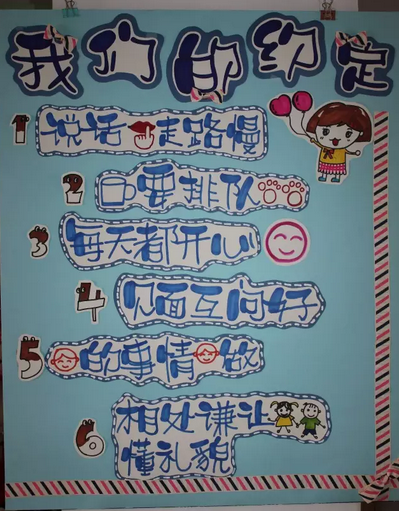 我们的约定
1 说话走路慢
2 要排队
3 每天都开心
4 见面互问好
5 的事情做
6 相处谦让
懂礼貌